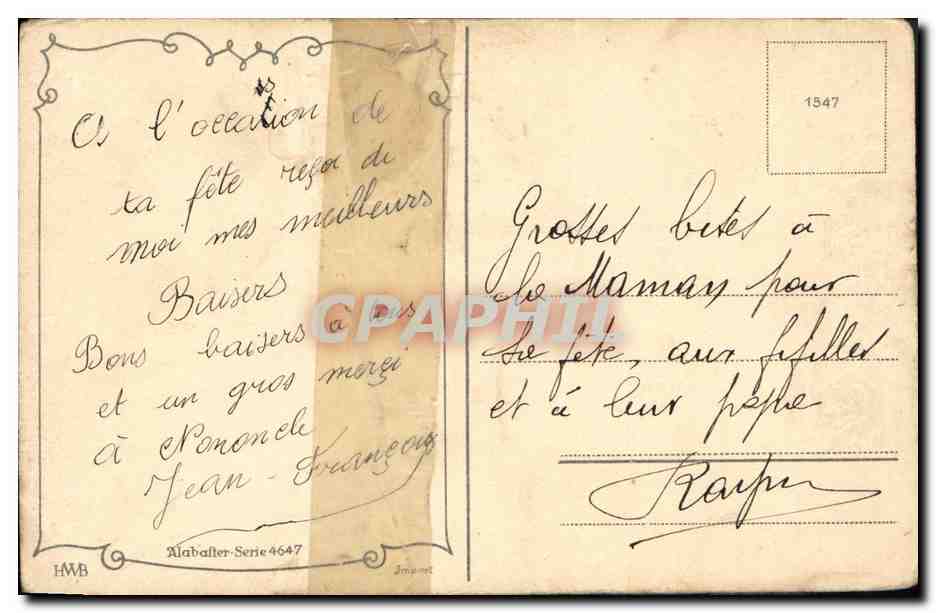 A l'occasion de
ta fête reçoi de
moi mes meilleurs
Baisers
Bons baisers à tous
et un gros merçi
à Nononcle
Jean-François
Alabaster-Serie 4647
HWB
Import
1547
Grosses bises à
la Maman pour
sa fête, aux fifilles
et à leur papa
CPAPHIL